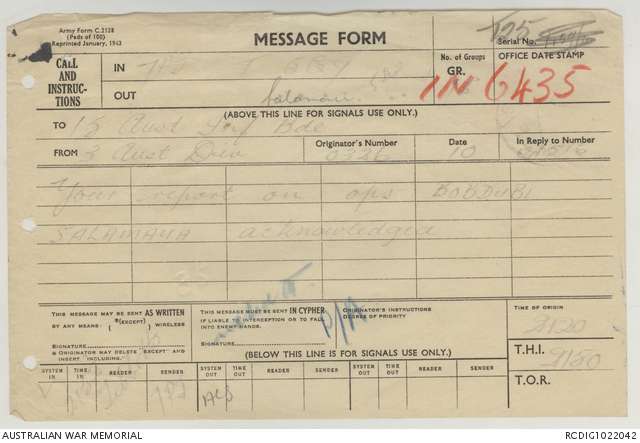 Army Form C.2128
(Pads of 100)
Reprinted January, 1943
MESSAGE FORM
Serial No.
CALL AND INSTRUC-TIONS
IN
OUT
No. of Groups
GR.
OFFICE DATE STAMP
IN 6435
(ABOVE THIS LINE FOR SIGNALS USE ONLY.)
TO 15 Aust Inf Bde
FROM 3 Aust Div
Originator's Number
Date 10
In Reply to Number
Your report on ops BOBDUBI
SALAMAUA acknowledged
THIS MESSAGE MAY BE SENT AS WRITTEN
BY ANY MEANS. (*(EXCEPT)) WIRELESS
SIGNATURE
* ORIGINATOR MAY DELETE "EXCEPT" AND INSERT "INCLUDING."
THIS MESSAGE MUST BE SENT IN CYPHER
IF LIABLE TO INTERCEPTION OR TO FALL INTO ENEMY HANDS.
SIGNATURE
ORIGINATOR'S INSTRUCTIONS
DEGREE OF PRIORITY
TIME OF ORIGIN
2120
T.H.I.
T.O.R.
(BELOW THIS LINE IS FOR SIGNALS USE ONLY.)
SYSTEM IN TIME IN READER SENDER SYSTEM OUT TIME OUT READER SENDER SYSTEM OUT TIME OUT READER SENDER
AUSTRALIAN WAR MEMORIAL
RCDIG1022042